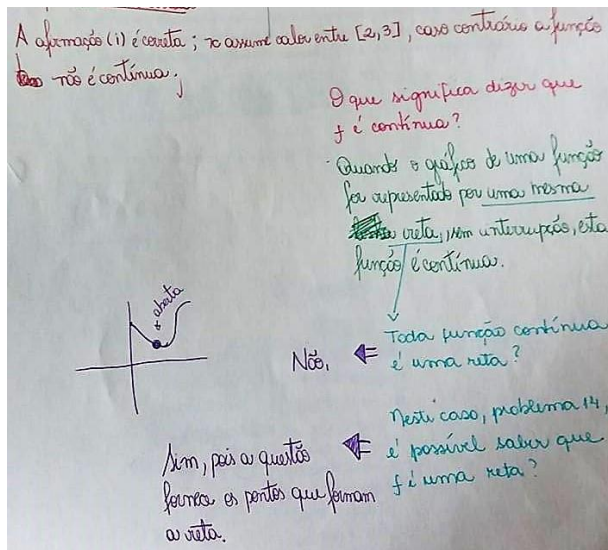 A afirmação (i) é correta; x assume valor entre [2,3], caso contrário a função
não é contínua.
O que significa dizer que
f é contínua?
Quando o gráfico de uma função
for representado por uma mesma
reta, sem interrupção, esta
função é contínua.
aberta
Toda função contínua
é uma reta?
Não,
Neste caso, problema 14,
é possível saber que
f é uma reta?
Sim, pois a questão
fornece os pontos que formam
a reta.